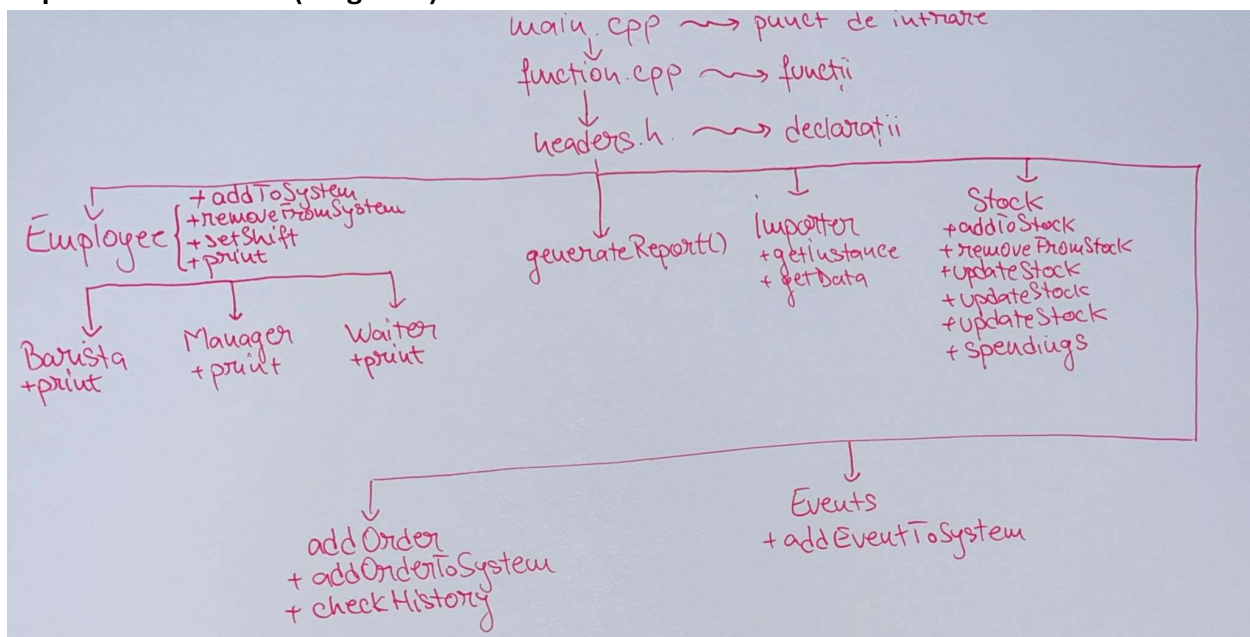 main.cpp punct de intrare
function.cpp funcții
headers.h. declarații
Employee
+ addToSystem
+ removeFromSystem
+ setShift
+ print
Barista
+ print
Manager
+ print
Waiter
+ print
generateReport()
Importer
+ getInstance
+ getData
Stock
+ addToStock
+ removeFromStock
+ updateStock
+ updateStock
+ updateStock
+ spendings
addOrder
+ addOrderToSystem
+ checkHistory
Events
+ addEventToSystem